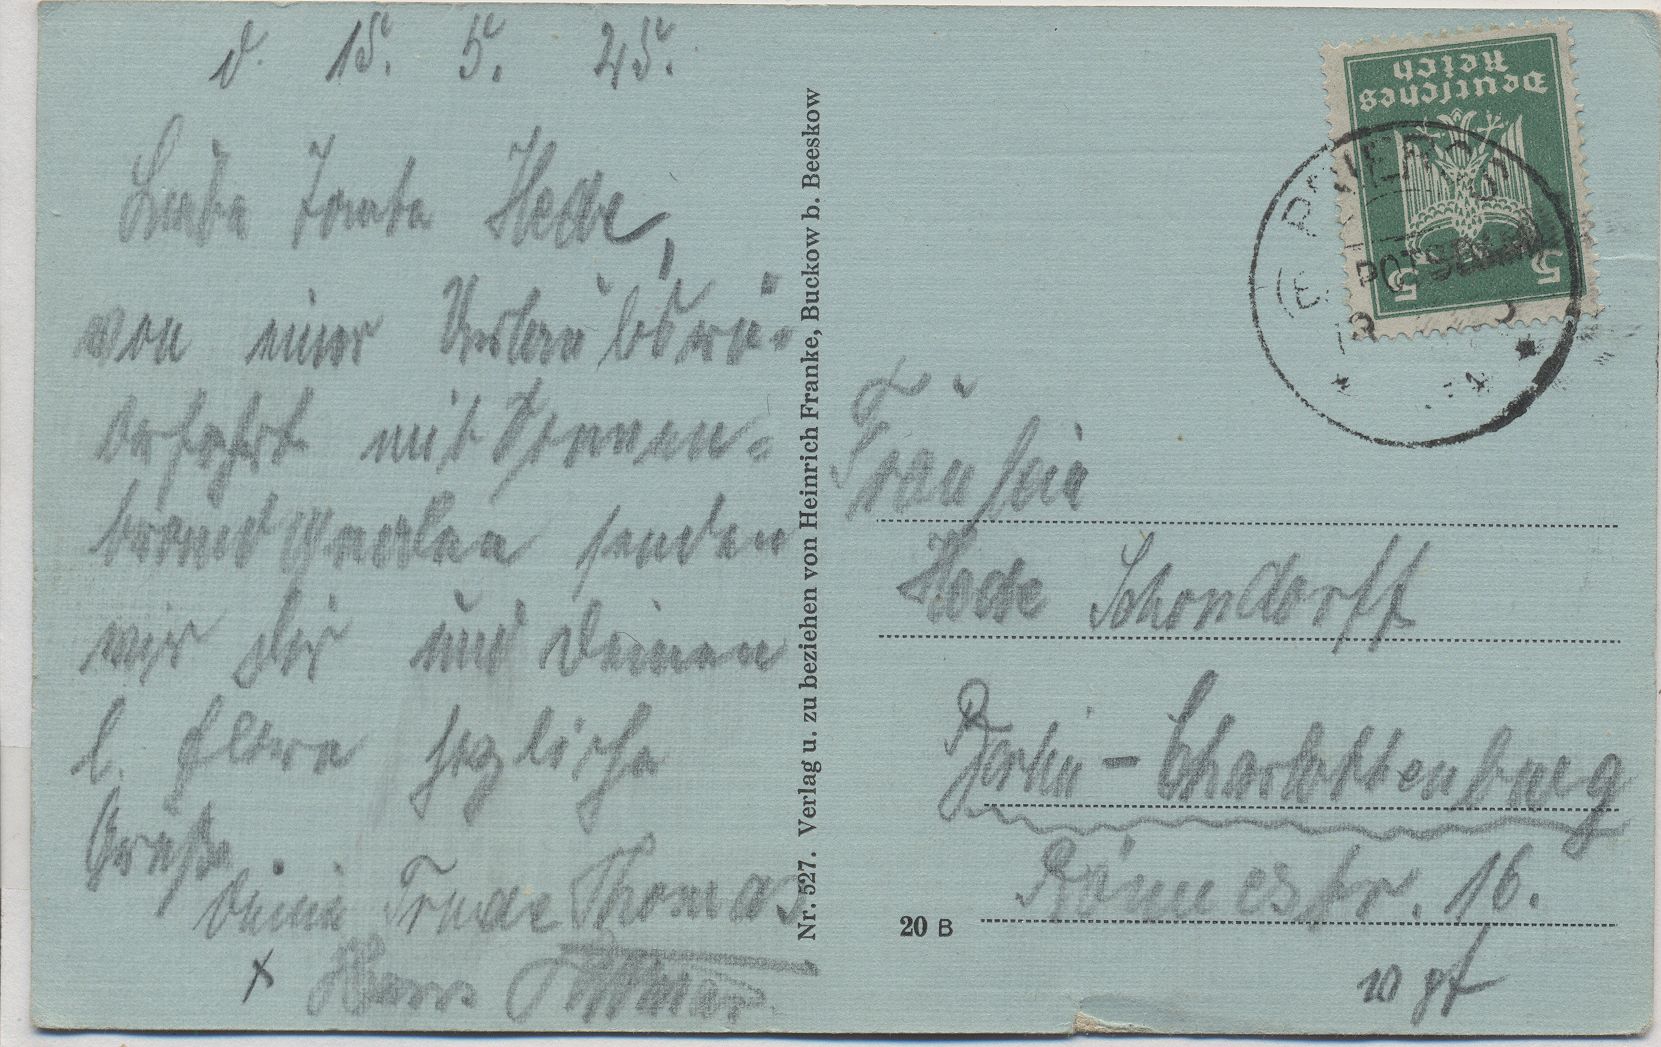 d. 15. 5. 25.
Liebe Tante Hede,
von einer
fahrt mit Sonnen-
senden
wir Dir und Deinen
l. Eltern herzliche
Grüße.
Deine Trude Thomas
x Thomas
Nr. 527. Verlag u. zu beziehen von Heinrich Franke, Buckow b. Beeskow
Deutsches
Reich
5 5
POTSDAM
Fräulein
Hede Schondorff
Berlin - Charlottenburg
str. 16.
20 B